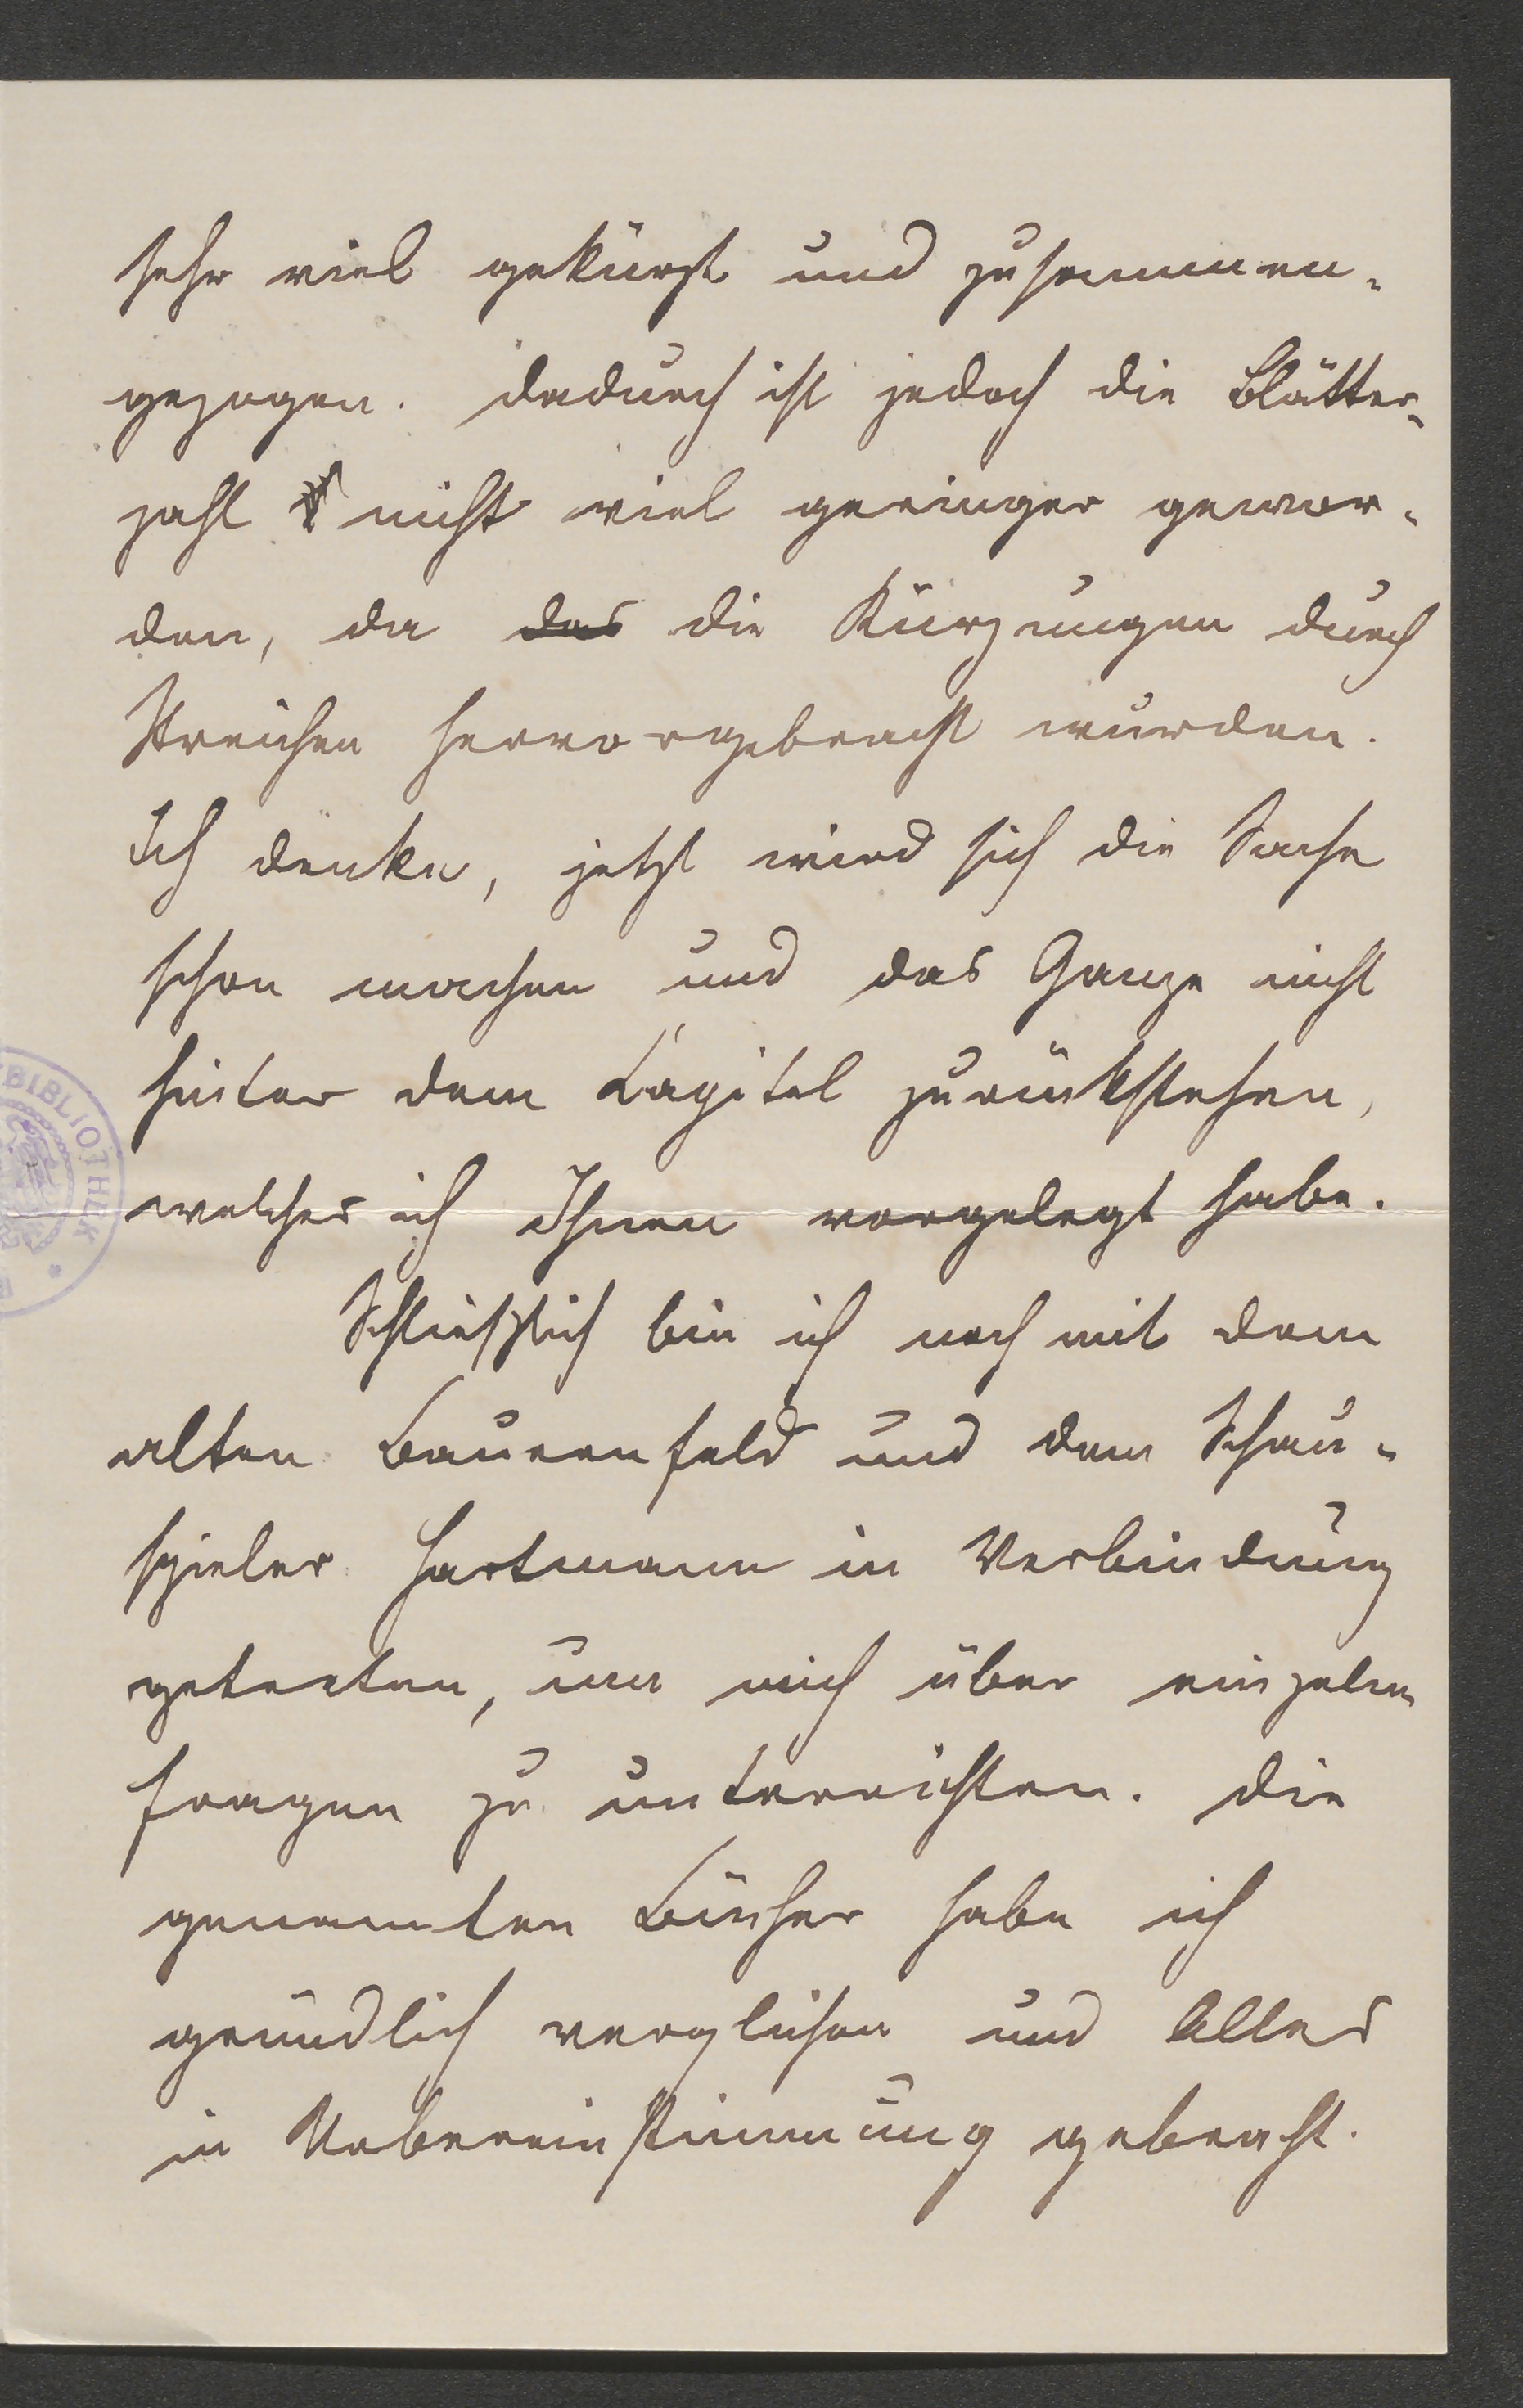 sehr viel gekürzt und zusammen-
gezogen. Dadurch ist jedoch die Blätter-
zahl nicht viel geringer gewor-
den, da das die Kürzungen durch
Streichen hervorgebracht wurden.
Ich denke, jetzt wird sich die Sache
schon machen und das Ganze nicht
hinter dem Capitel zurückstehen,
welches ich Ihnen vorgelegt habe.
Schließlich bin ich noch mit dem
alten Bauernfeld und dem Schau-
spieler Hartmann in Verbindung
getreten, um mich über einzelne
Fragen zu unterrichten. Die
genannten Bücher habe ich
gründlich verglichen und Alles
in Uebereinstimmung gebracht.
BIBLIOTHEK